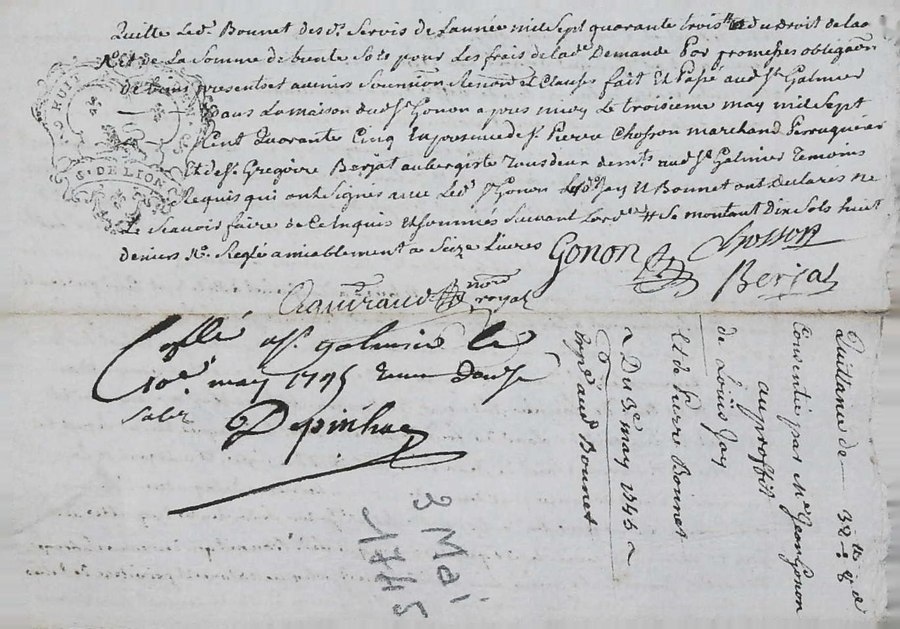 Quille Led. Bonnet des d. Servis de Lannée mil Sept quarante trois et du droit de la
Et de La Somme de trente Sols pour Les frais de lade Demande Par promesses obligaōn
De biens presents et avenirs Soumissōn Renonōn Et Clauses fait Et Passé aud St. Galmier
Dans La maison dud Sr. Gonon apres midy Le troisieme may mil Sept
Cent Quarante Cinq En presence de Sr. Pierre Chosson marchand Perruquier
Et de Sr. Gregoire Berjat aubergiste Tous deux demts. aud St. Galmier Temoins
Requis qui ont Signés avec Led. Sr. Gonon Jay Et Bonnet ont declarés ne
Le Scavoir faire de ce Enquis Et Sommés Suivant Lordce. Se montant Dix Sols huit
deniers Réglé amiablement a Seize Livres
HUIT
G. DE LION
Gonon
Chosson
Berjat
nore royal
Collé a St. galmier le
10e. may 1745 Receu douze
Sols
Depinhac
Quittance de 32 8
Consentie par Me Jean Gonon
au proffit
de Louis Jay
Et de Pierre Bonnet
Du 3e may 1745
Exped aud Bonnet
3 Mai
1745